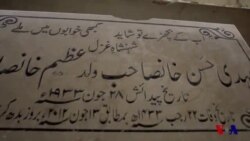 اب کے بچھڑے تو شاید کبھی خوابوں میں ملے
شہنشاہِ غزل
مہدی حسن خانصاحب ولد عظیم خانصاحب
تاریخ پیدائش ۲۸ جون ۱۹۳۳ء
تاریخ وفات ۲۲ رجب ۱۴۳۳ھ بمطابق ۱۳ جون ۲۰۱۲ء بروز بدھ